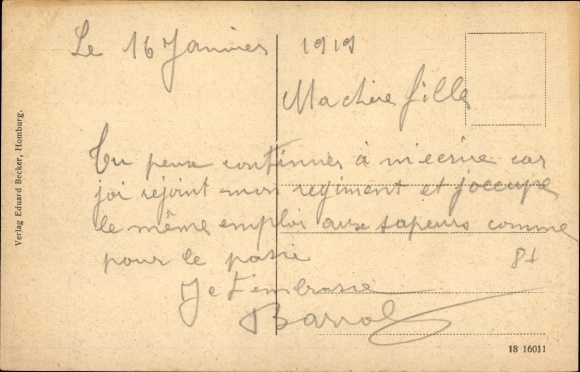 Le 16 Janvier 1919
Ma chère fille
Tu peux continuer à m'ecrire car
j'ai rejoint mon regiment et j'occupe
le même emploi aux sapeurs comme
pour le passé
Je t'embrasse
Verlag Eduard Becker, Homburg.
18 16011